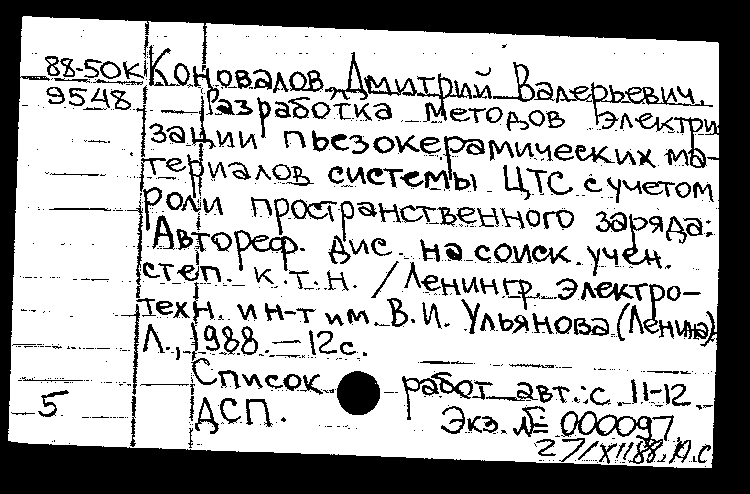 88-50К Коновалов, Дмитрий Валерьевич.
9548 Разработка методов электри
зации пьезокерамических ма-
териалов системы ЦТС с учетом
роли пространственного заряда:
Автореф. дис. на соиск. учен.
степ. к.т.н. / Ленингр. электро-
техн. ин-т им. В.И. Ульянова (Ленина)
Л., 1988. — 12 с.
Список работ авт.: с. 11-12.
5 ДСП. Экз. № 000097
27/XII88.